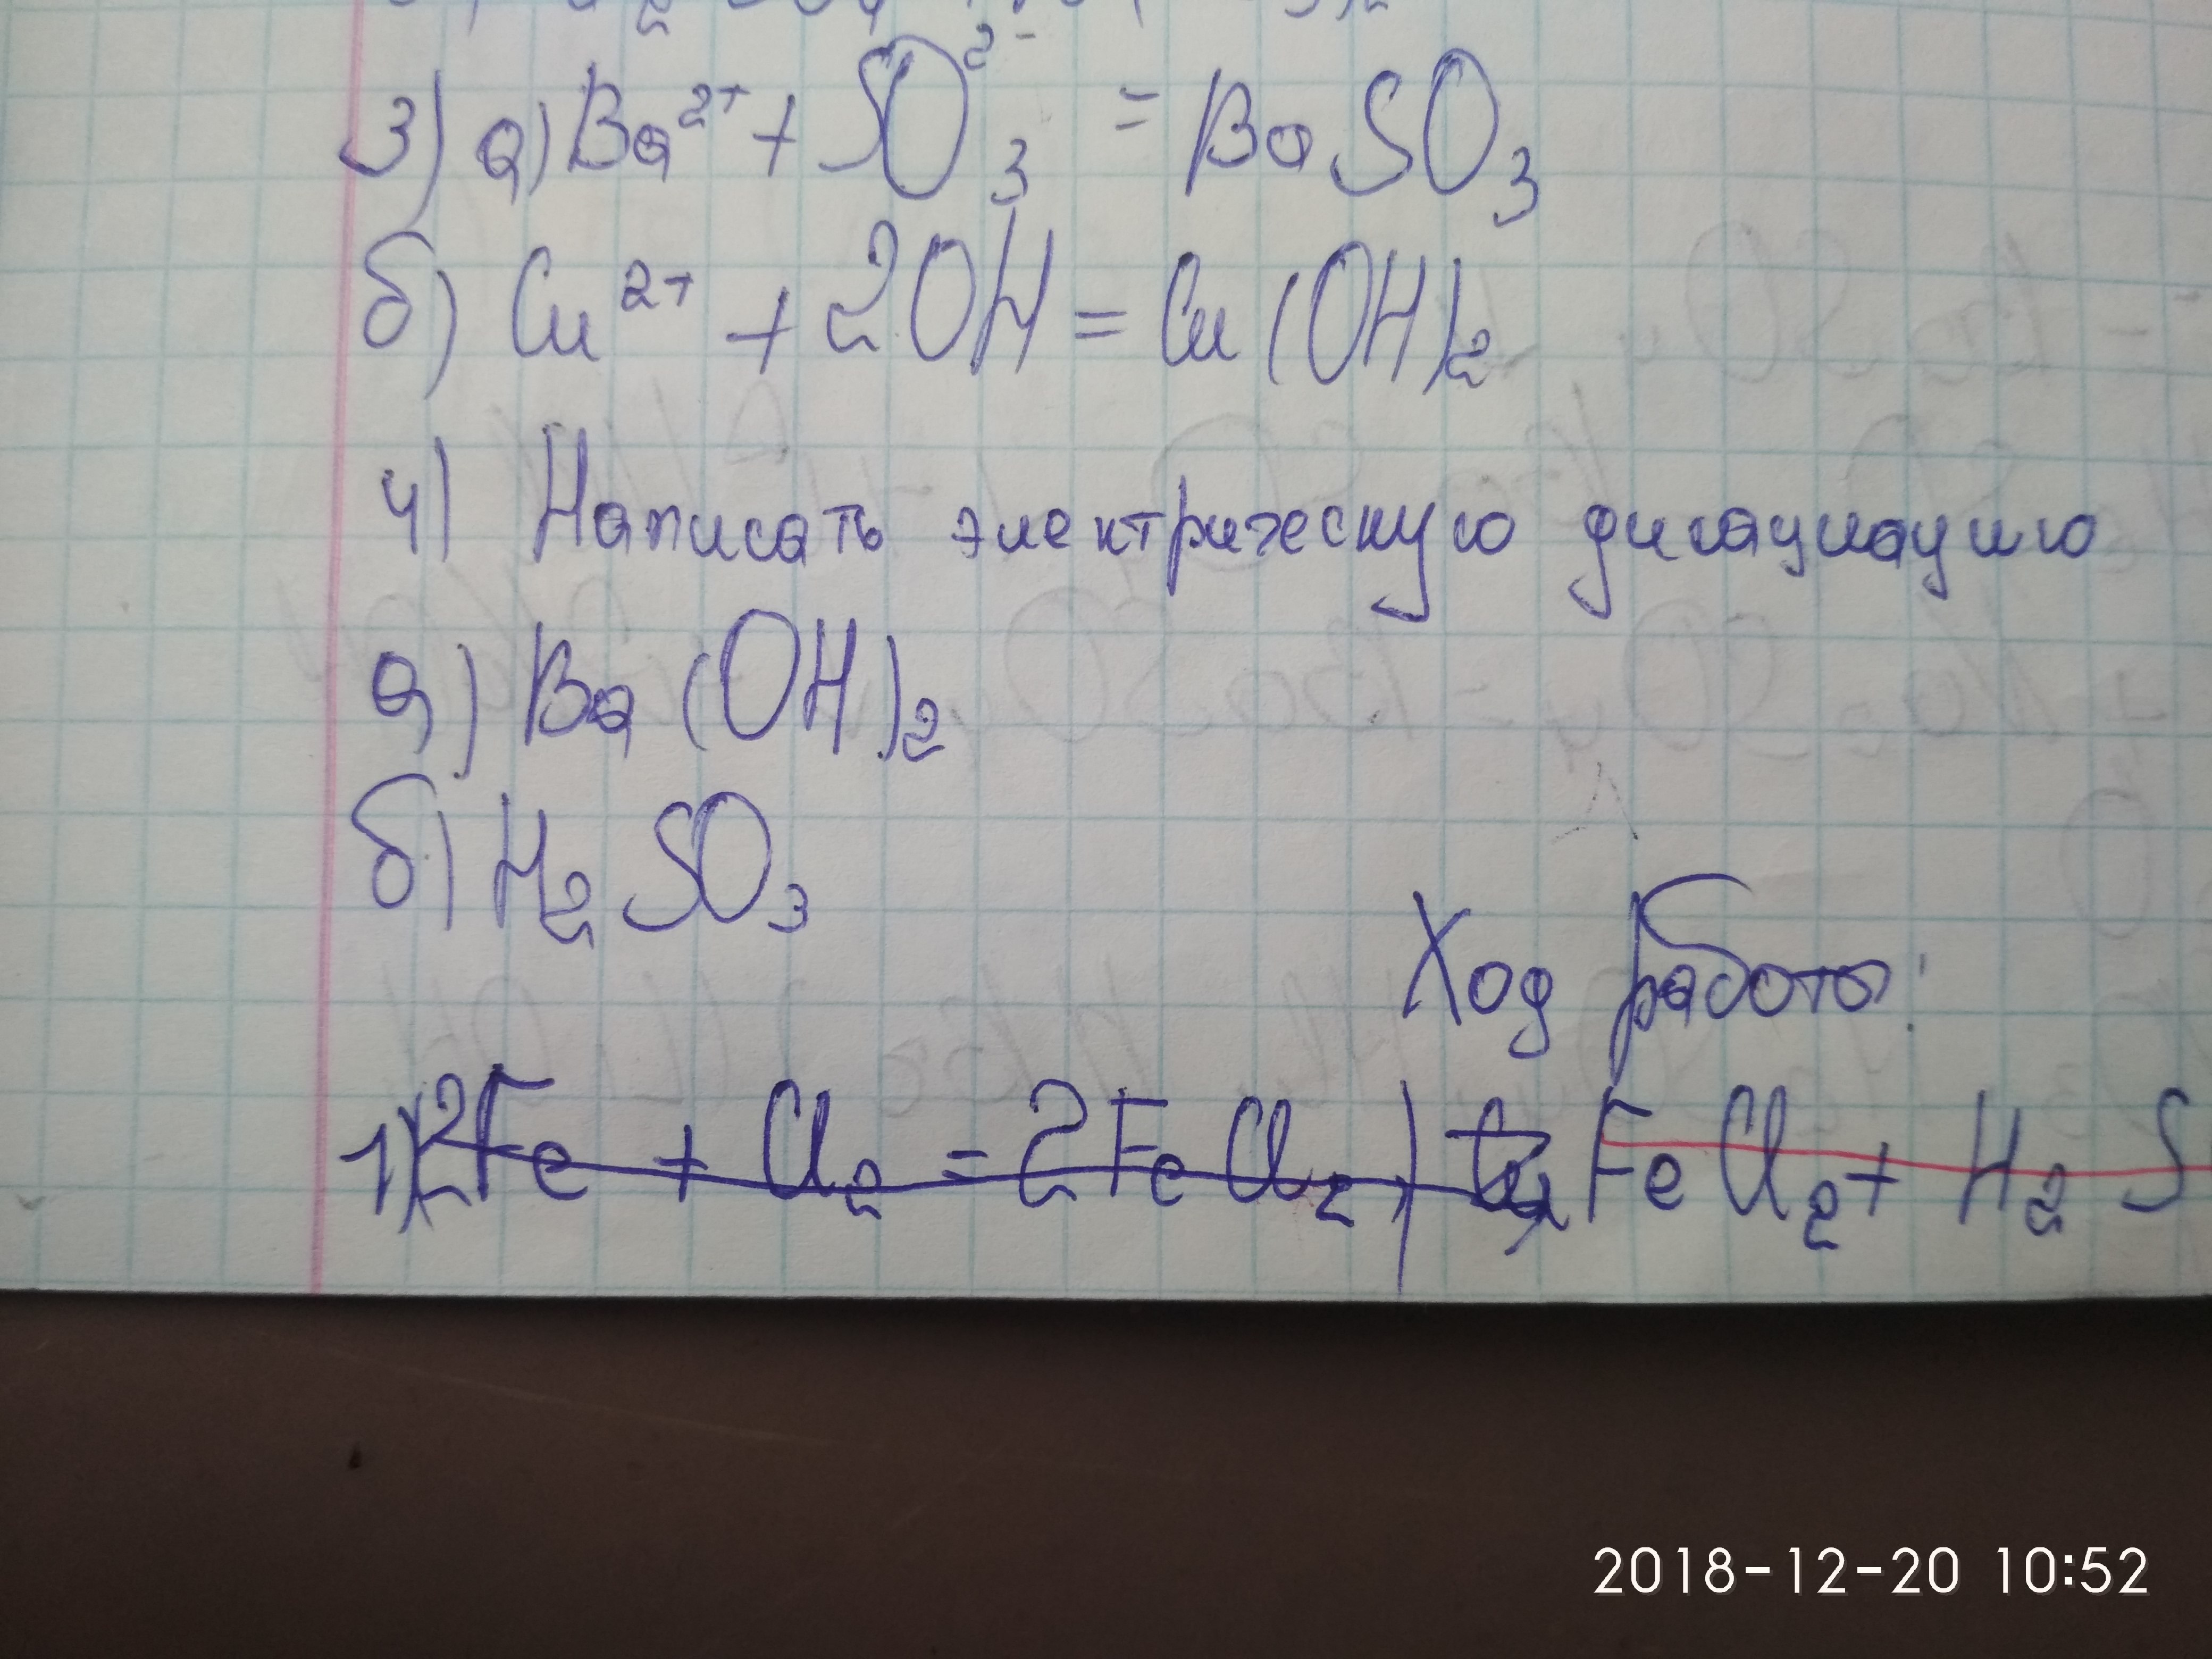 3) а) Ba²⁺ + SO₃²⁻ = BaSO₃
б) Cu²⁺ + 2OH = Cu(OH)₂
4) Написать электрическую дисациацию
а) Ba(OH)₂
б) H₂SO₃
Ход работы:
1) 2Fe + Cl₂ = 2FeCl₂ FeCl₂ + H₂S
2018-12-20 10:52